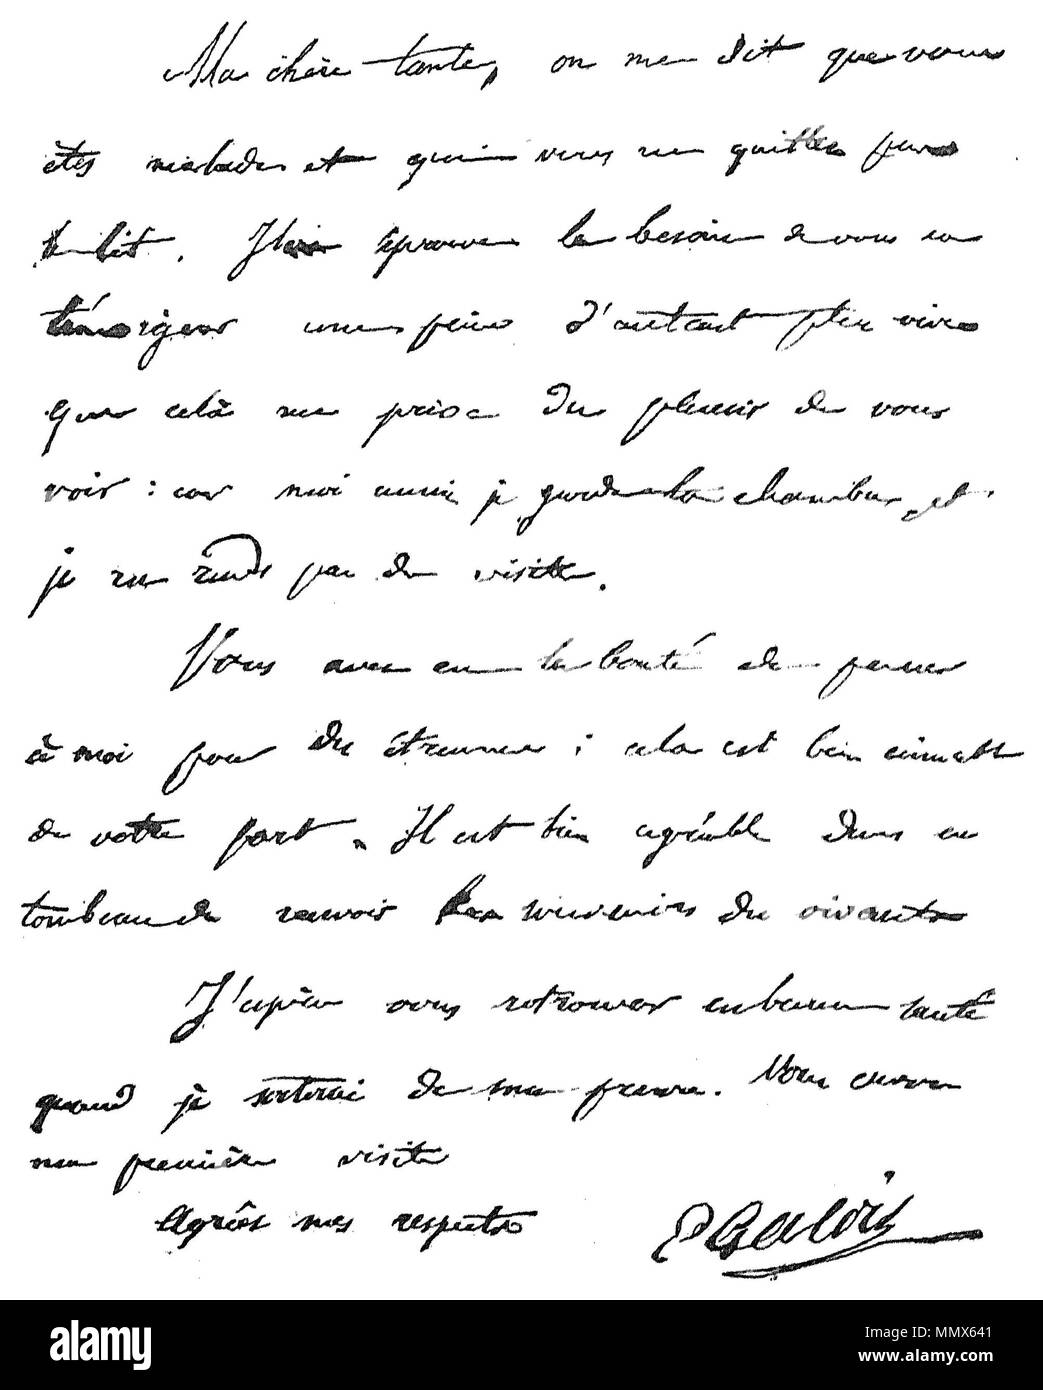 Ma chère tante, on me dit que vous
êtes malade et que vous ne quittez pas
le lit. J' éprouve le besoin de vous en
témoigner une peine d'autant plus vive
que celà me prive du plaisir de vous
voir : car moi aussi je garde la chambre, et
je ne rends pas de visite.
Vous avez eu la bonté de penser
à moi pour des étrennes ; cela est bien aimable
de votre part. Il est bien agréable dans un
tombeau de recevoir les souvenirs des vivants
J'espère vous retrouver en bonne santé
quand je sortirai de ma prison. Vous aurez
ma première visite
Agréez mes respects E Galois
alamy
a
Image ID: MMX641
www.alamy.com